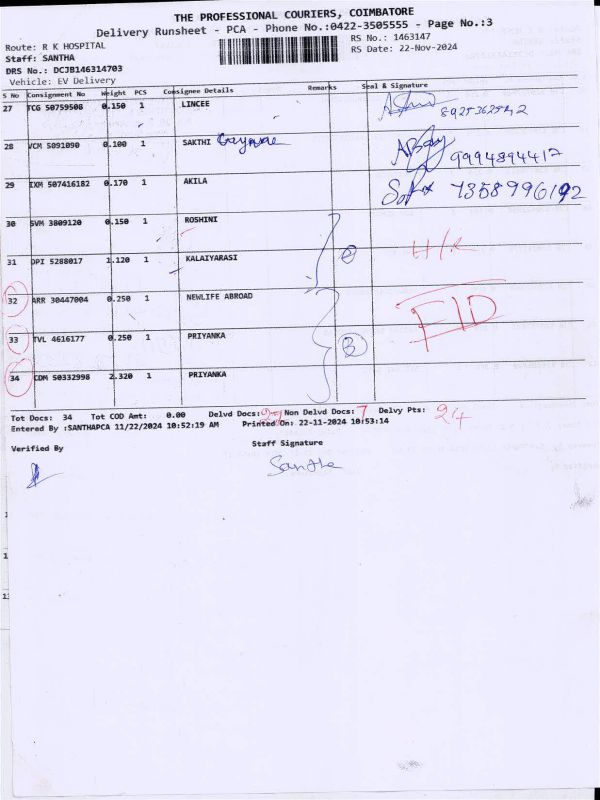 THE PROFESSIONAL COURIERS, COIMBATORE
Delivery Runsheet - PCA - Phone No.:0422-3505555 - Page No.:3
Route: R K HOSPITAL
RS No.: 1463147
Staff: SANTHA
RS Date: 22-Nov-2024
DRS No.: DCJB146314703
Vehicle: EV Delivery
S No Consignment No Weight PCS Consignee Details Remarks Seal & Signature
27 TCG 50759508 0.150 1 LINCEE 8925362542
28 VCM 5091090 0.100 1 SAKTHI 9994894417
29 IXM 507416182 0.170 1 AKILA 7358996192
30 SVM 3809120 0.150 1 ROSHINI
31 DPI 5288017 1.120 1 KALAIYARASI H/K
32 ARR 30447004 0.250 1 NEWLIFE ABROAD FID
33 TVL 4616177 0.250 1 PRIYANKA 3
34 CDM 50332998 2.320 1 PRIYANKA
Tot Docs: 34 Tot COD Amt: 0.00 Delvd Docs: 27 Non Delvd Docs: 7 Delvy Pts: 24
Entered By :SANTHAPCA 11/22/2024 10:52:19 AM Printed On: 22-11-2024 10:53:14
Verified By
Staff Signature
Santha